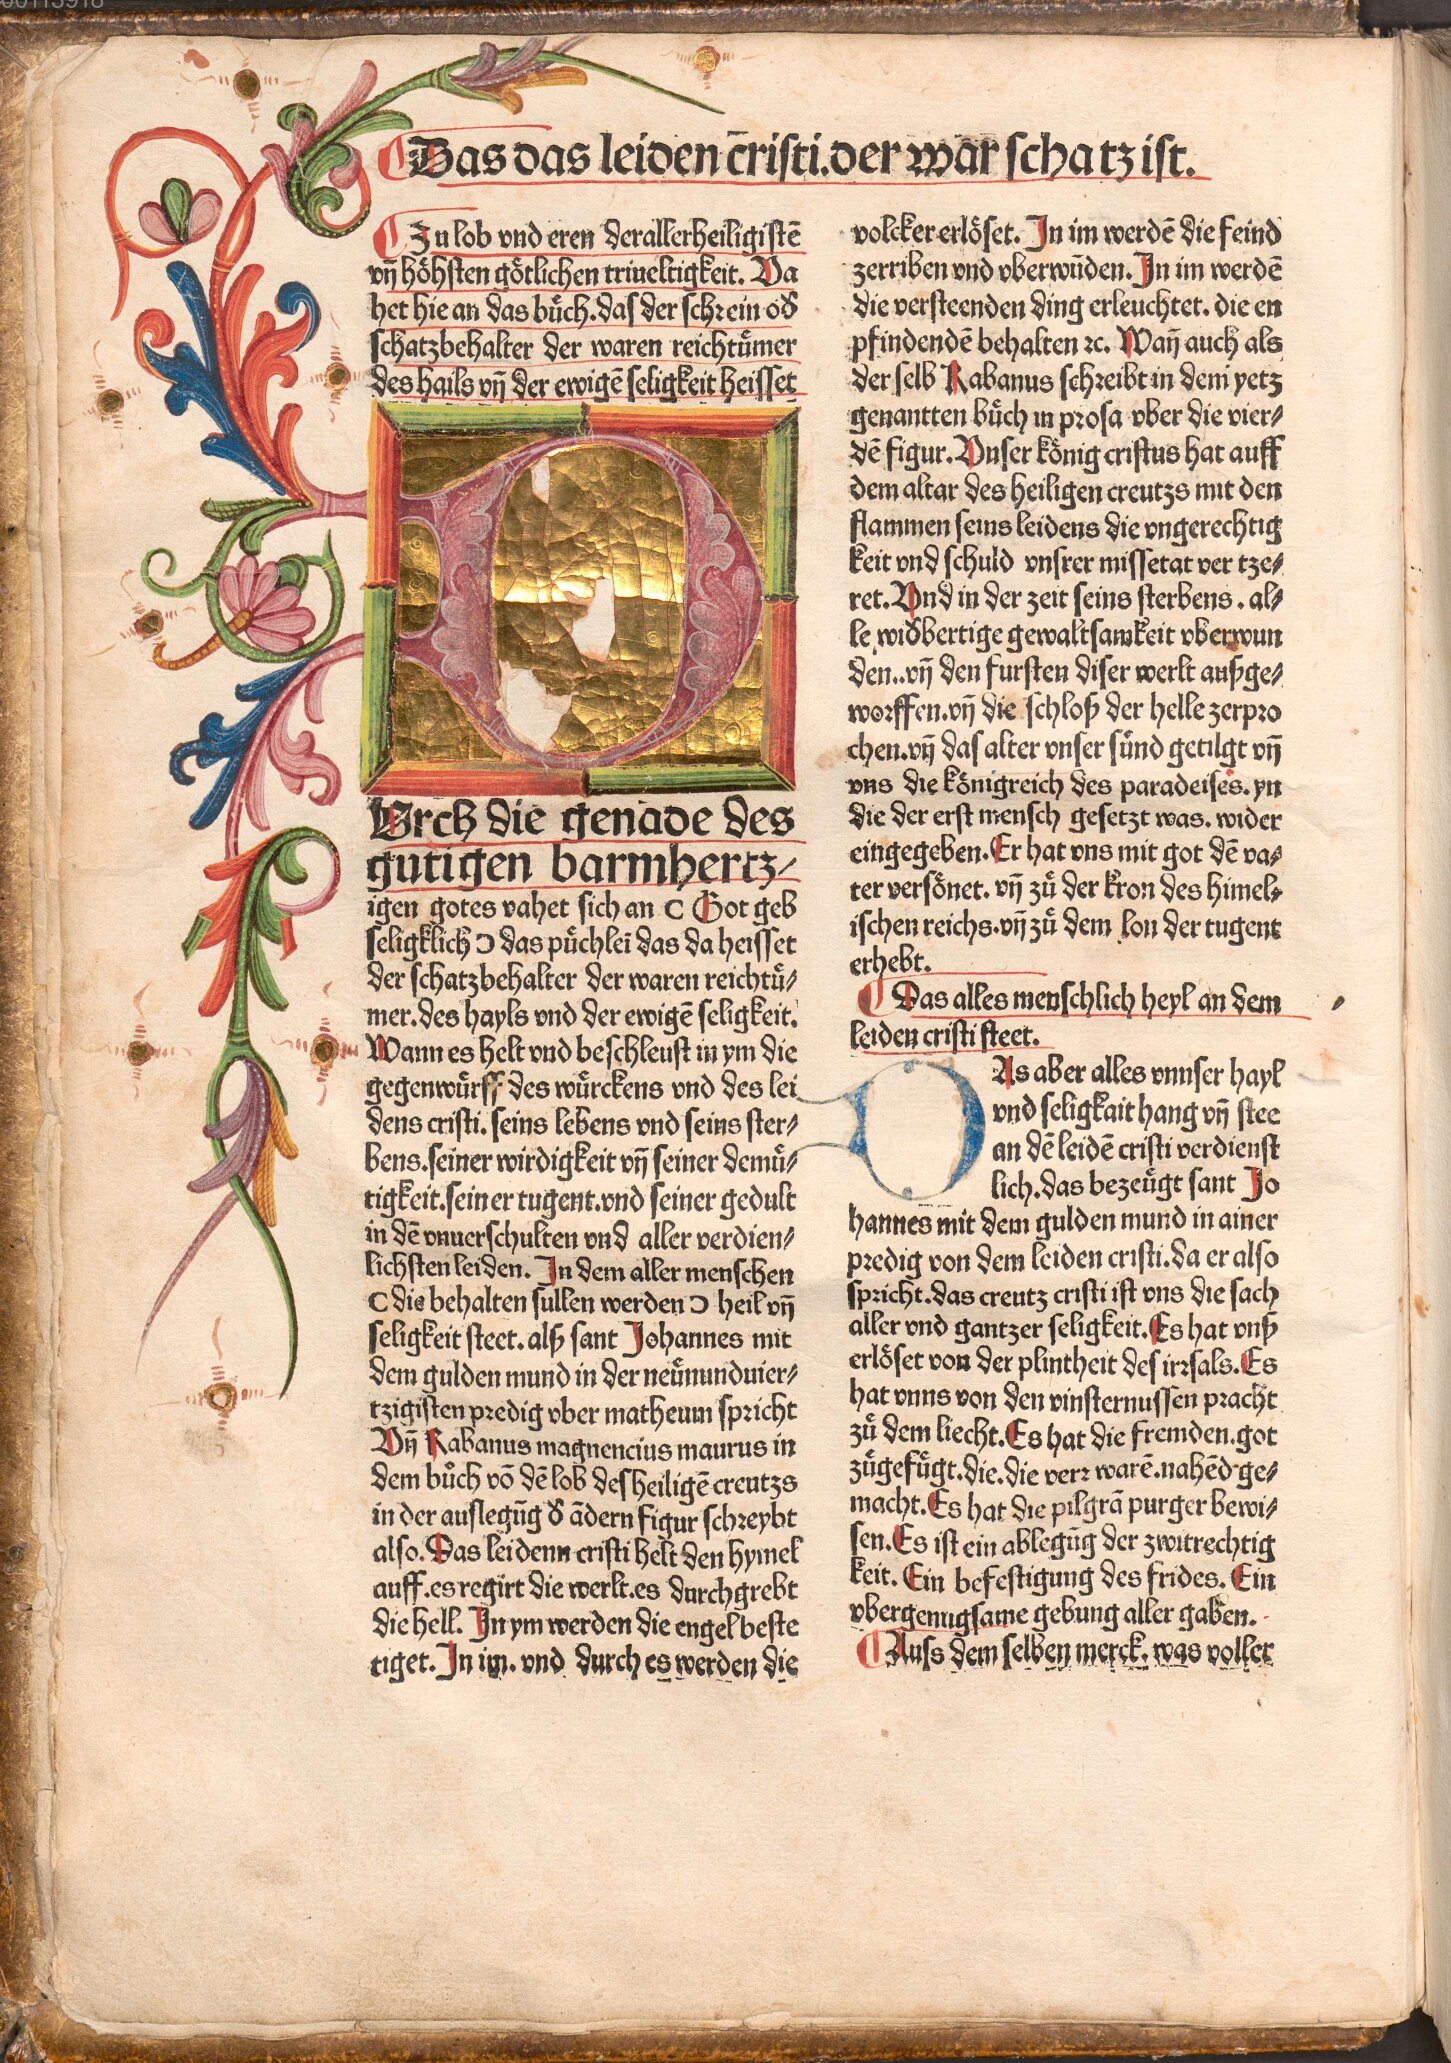 00113918
Das das leiden c̄risti.der war schatz ist.
Zu lob vnd eren derallerheiligistē
vn̄ hoͤhsten goͤtlichen triueltigkeit. Va
het hie an das buͦch.das der schrein od̕
schatzbehalter der waren reichtuͤmer
des hails vn̄ der ewigē seligkeit heisset
DVrch die genade des
gutigen barmhertz⸗
igen gotes vahet sich an C Got geb
seligklich Ɔ das puͤchlei das da heisset
der schatzbehalter der waren reichtuͤ⸗
mer.des hayls vnd der ewigē seligkeit.
Wann es helt vnd beschleust in ym die
gegenwuͤrff des wuͤrckens vnd des lei
dens cristi.seins lebens vnd seins ster⸗
bens.seiner wirdigkeit vn̄ seiner demuͤ⸗
tigkeit.seiner tugent.vnd seiner gedult
in dē vnuerschulten vnd aller verdien⸗
lichsten leiden. In dem aller menschen
C die behalten sullen werden Ɔ heil vn̄
seligkeit steet.alß sant Johannes mit
dem gulden mund in der neuͤnundvier⸗
tzigisten predig vber matheum spricht
Vn̄ Rabanus magnencius maurus in
dem buͦch vō dē lob des heiligē creutzs
in der auslegūg d̕ ādern figur schreybt
also.Das leidenn cristi helt den hymel
auff.es regirt die werlt.es durchgrebt
die hell. In ym werden die engel beste
tiget. In im. vnd durch es werden die
volcker erloͤset. In im werdē die feind
zerriben vnd vberwūden. In im werdē
die versteenden ding erleuchtet. die en
pfindendē behalten ꝛc. Wan̄ auch als
der selb Rabanus schreibt in dem yetz
genantten buͦch in prosa vber die vier⸗
dē figur. Vnser koͤnig cristus hat auff
dem altar des heiligen creutzs mit den
flammen seins leidens die vngerechtig
keit vnd schuld vnsrer missetat ver tze⸗
ret. Vnd in der zeit seins sterbens. al⸗
le widbertige gewaltsamkeit vberwun
den..vn̄ den fursten diser werlt außge⸗
worffen.vn̄ die schloß der helle zerpro
chen.vn̄ das alter vnser suͤnd getilgt vn̄
vns die koͤnigreich des paradeises.yn
die der erst mensch gesetzt was. wider
eingegeben. Er hat vns mit got dē va⸗
ter versoͤnet. vn̄ zuͦ der kron des himel⸗
ischen reichs.vn̄ zuͦ dem lon der tugent
erhebt.
Das alles menschlich heyl an dem
leiden cristi steet.
DAs aber alles vnnser hayl
vnd seligkait hang vn̄ stee
an dē leidē cristi verdienst
lich.das bezeuͤgt sant Jo
hannes mit dem gulden mund in ainer
predig von dem leiden cristi.da er also
spricht.das creutz cristi ist vns die sach
aller vnd gantzer seligkeit. Es hat vnß
erloͤset von der plintheit des irrsals. Es
hat vnns von den vinsternussen pracht
zuͦ dem liecht. Es hat die fremden.got
zuͦgefuͤgt.die.die verr warē.nahēd ge⸗
macht. Es hat die pilgrā purger bewi⸗
sen. Es ist ein ablegūg der zwitrechtig
keit. Ein befestigung des frides. Ein
vbergenugsame gebung aller gaben.
Auss dem selben merck. was voller